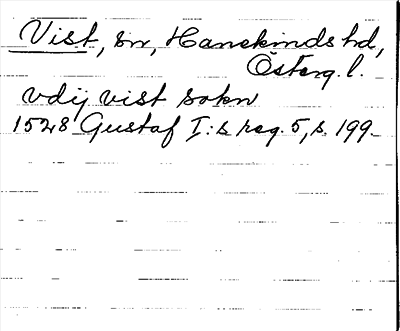 Vist, sn, Hanekinds hd,
Österg. l.
vdij vist sokn
1528 Gustaf I:s reg. 5, s. 199.